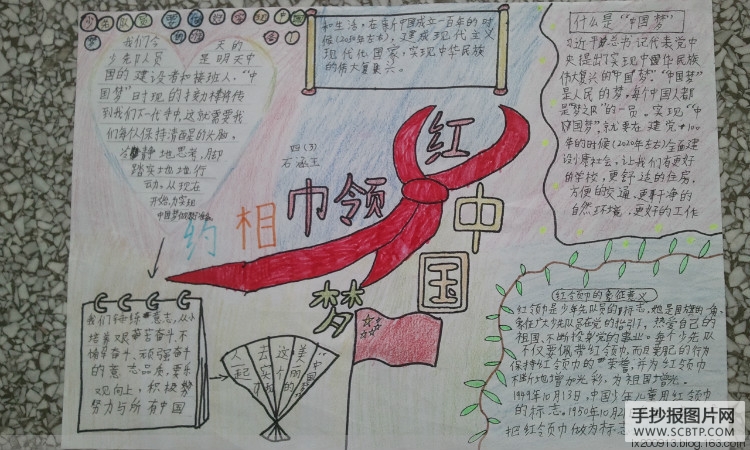 我们今天的
少先队员是明天中
国的建设者和接班人."中
国梦"的接力棒将传
到我们下一代手中,这就需要我
们每个人保持清醒的头脑.
冷静地思考,脚
踏实地地行
动.从现在
开始,为实现
和生活,在新中国成立一百年的时
候(2050年左右),建成现代主义
现代化国家,实现中华民族
的伟大复兴。
什么是"中国梦"
习近平总书记代表党中
央提出了实现中国华民族
伟大复兴的"中国梦"."中国梦"
是人民的梦.每个中国人都
是"梦之队"的一员.实现"中
国梦",就要在建党100
年的时候(2020年左右)全面建
设小康社会,让我们有更好
的学校,更舒适的住房,
方便的交通,更干净的
自然环境,更好的工作
四(3)
石涵玉
红领巾相约
中国梦
我们
培养艰苦奋斗.不
惧辛奋斗.顽强奋斗
的意志品质.要乐
观向上,积极
努力与所有中国
人一起
去实现
这个
美丽的
"中国梦"
红领巾的象征意义
红领巾是少年先队员的标志,她是国旗的一角,
象征了
祖国,不断
不仅要佩带红领巾,而且要
保持红领巾的"荣誉",并为红领巾
不断地增加光彩,为祖国增光.
1949年10月13日,中国少年儿童用红领巾
的标志.1950年10月
把红领巾做为标志
手抄报图片网
WWW.SCBTP.COM
lx200913.blog.163.com